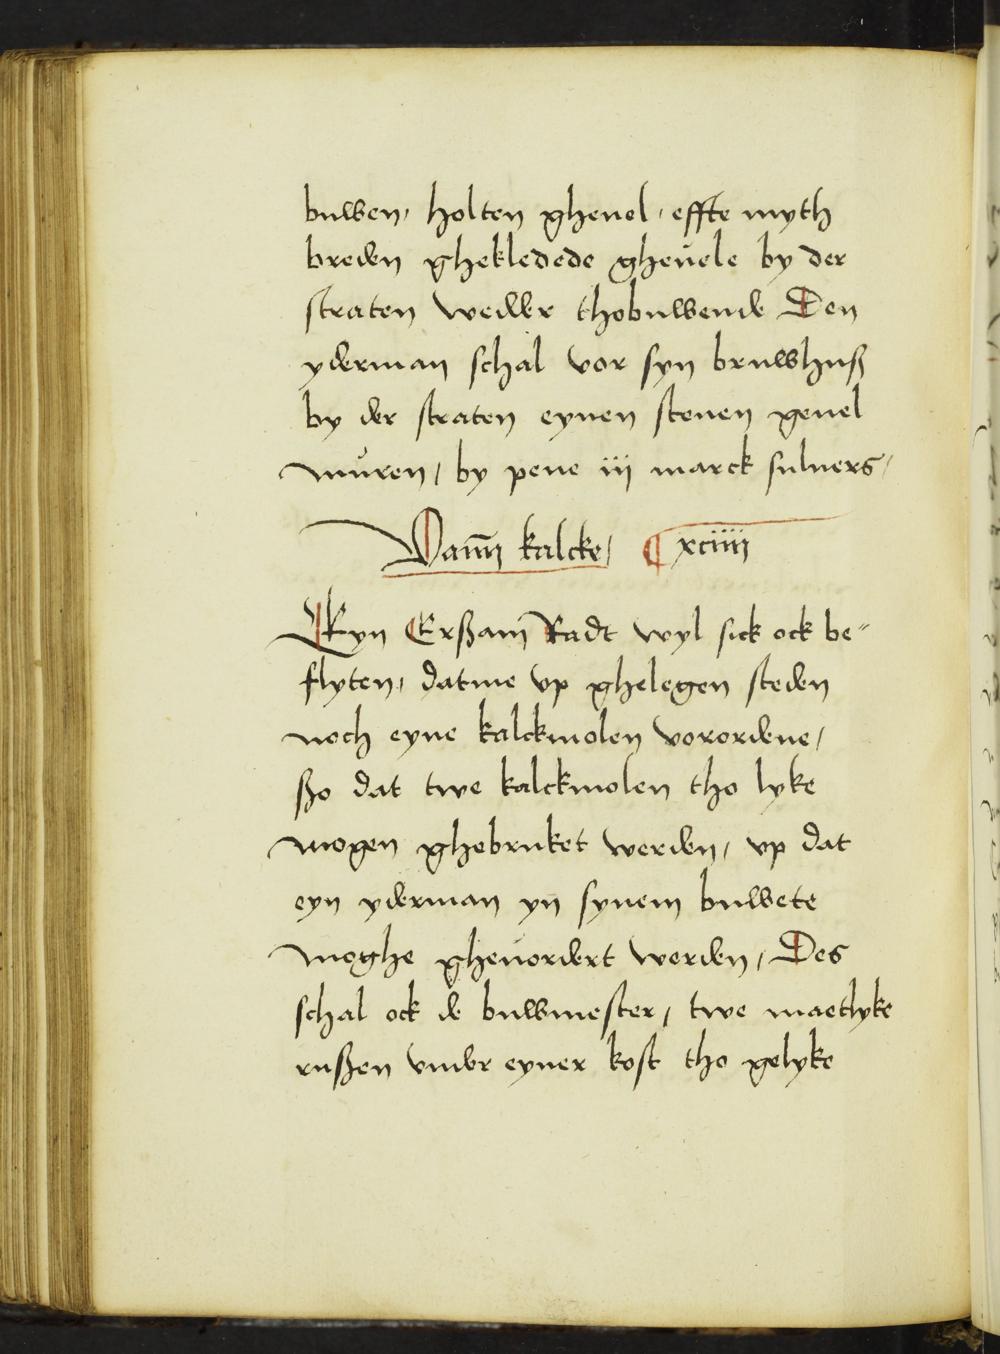 buwen, holten gheuel, effte myth
breden ghekledede gheuele by der
straten wedder thobuwende Den
yderman schal vor syn bruwhuß
by der straten eynen stenen geuel
muren, by pene iij marck suluers,
Vann kalcke, ¶ xciiii
Eyn Erßam Radt wyl sick ock be-
flyten, datme vp ghelegen steden
noch eyne kalckmolen vorordene,
ßo dat twe kalckmolen tho lyke
mogen ghebruket werden, vp dat
eyn yderman yn synem buwete
moghe gheuordert werden, Des
schal ock de buwmester, twe maetlyke
rußen vnder eyner kost tho gelyke